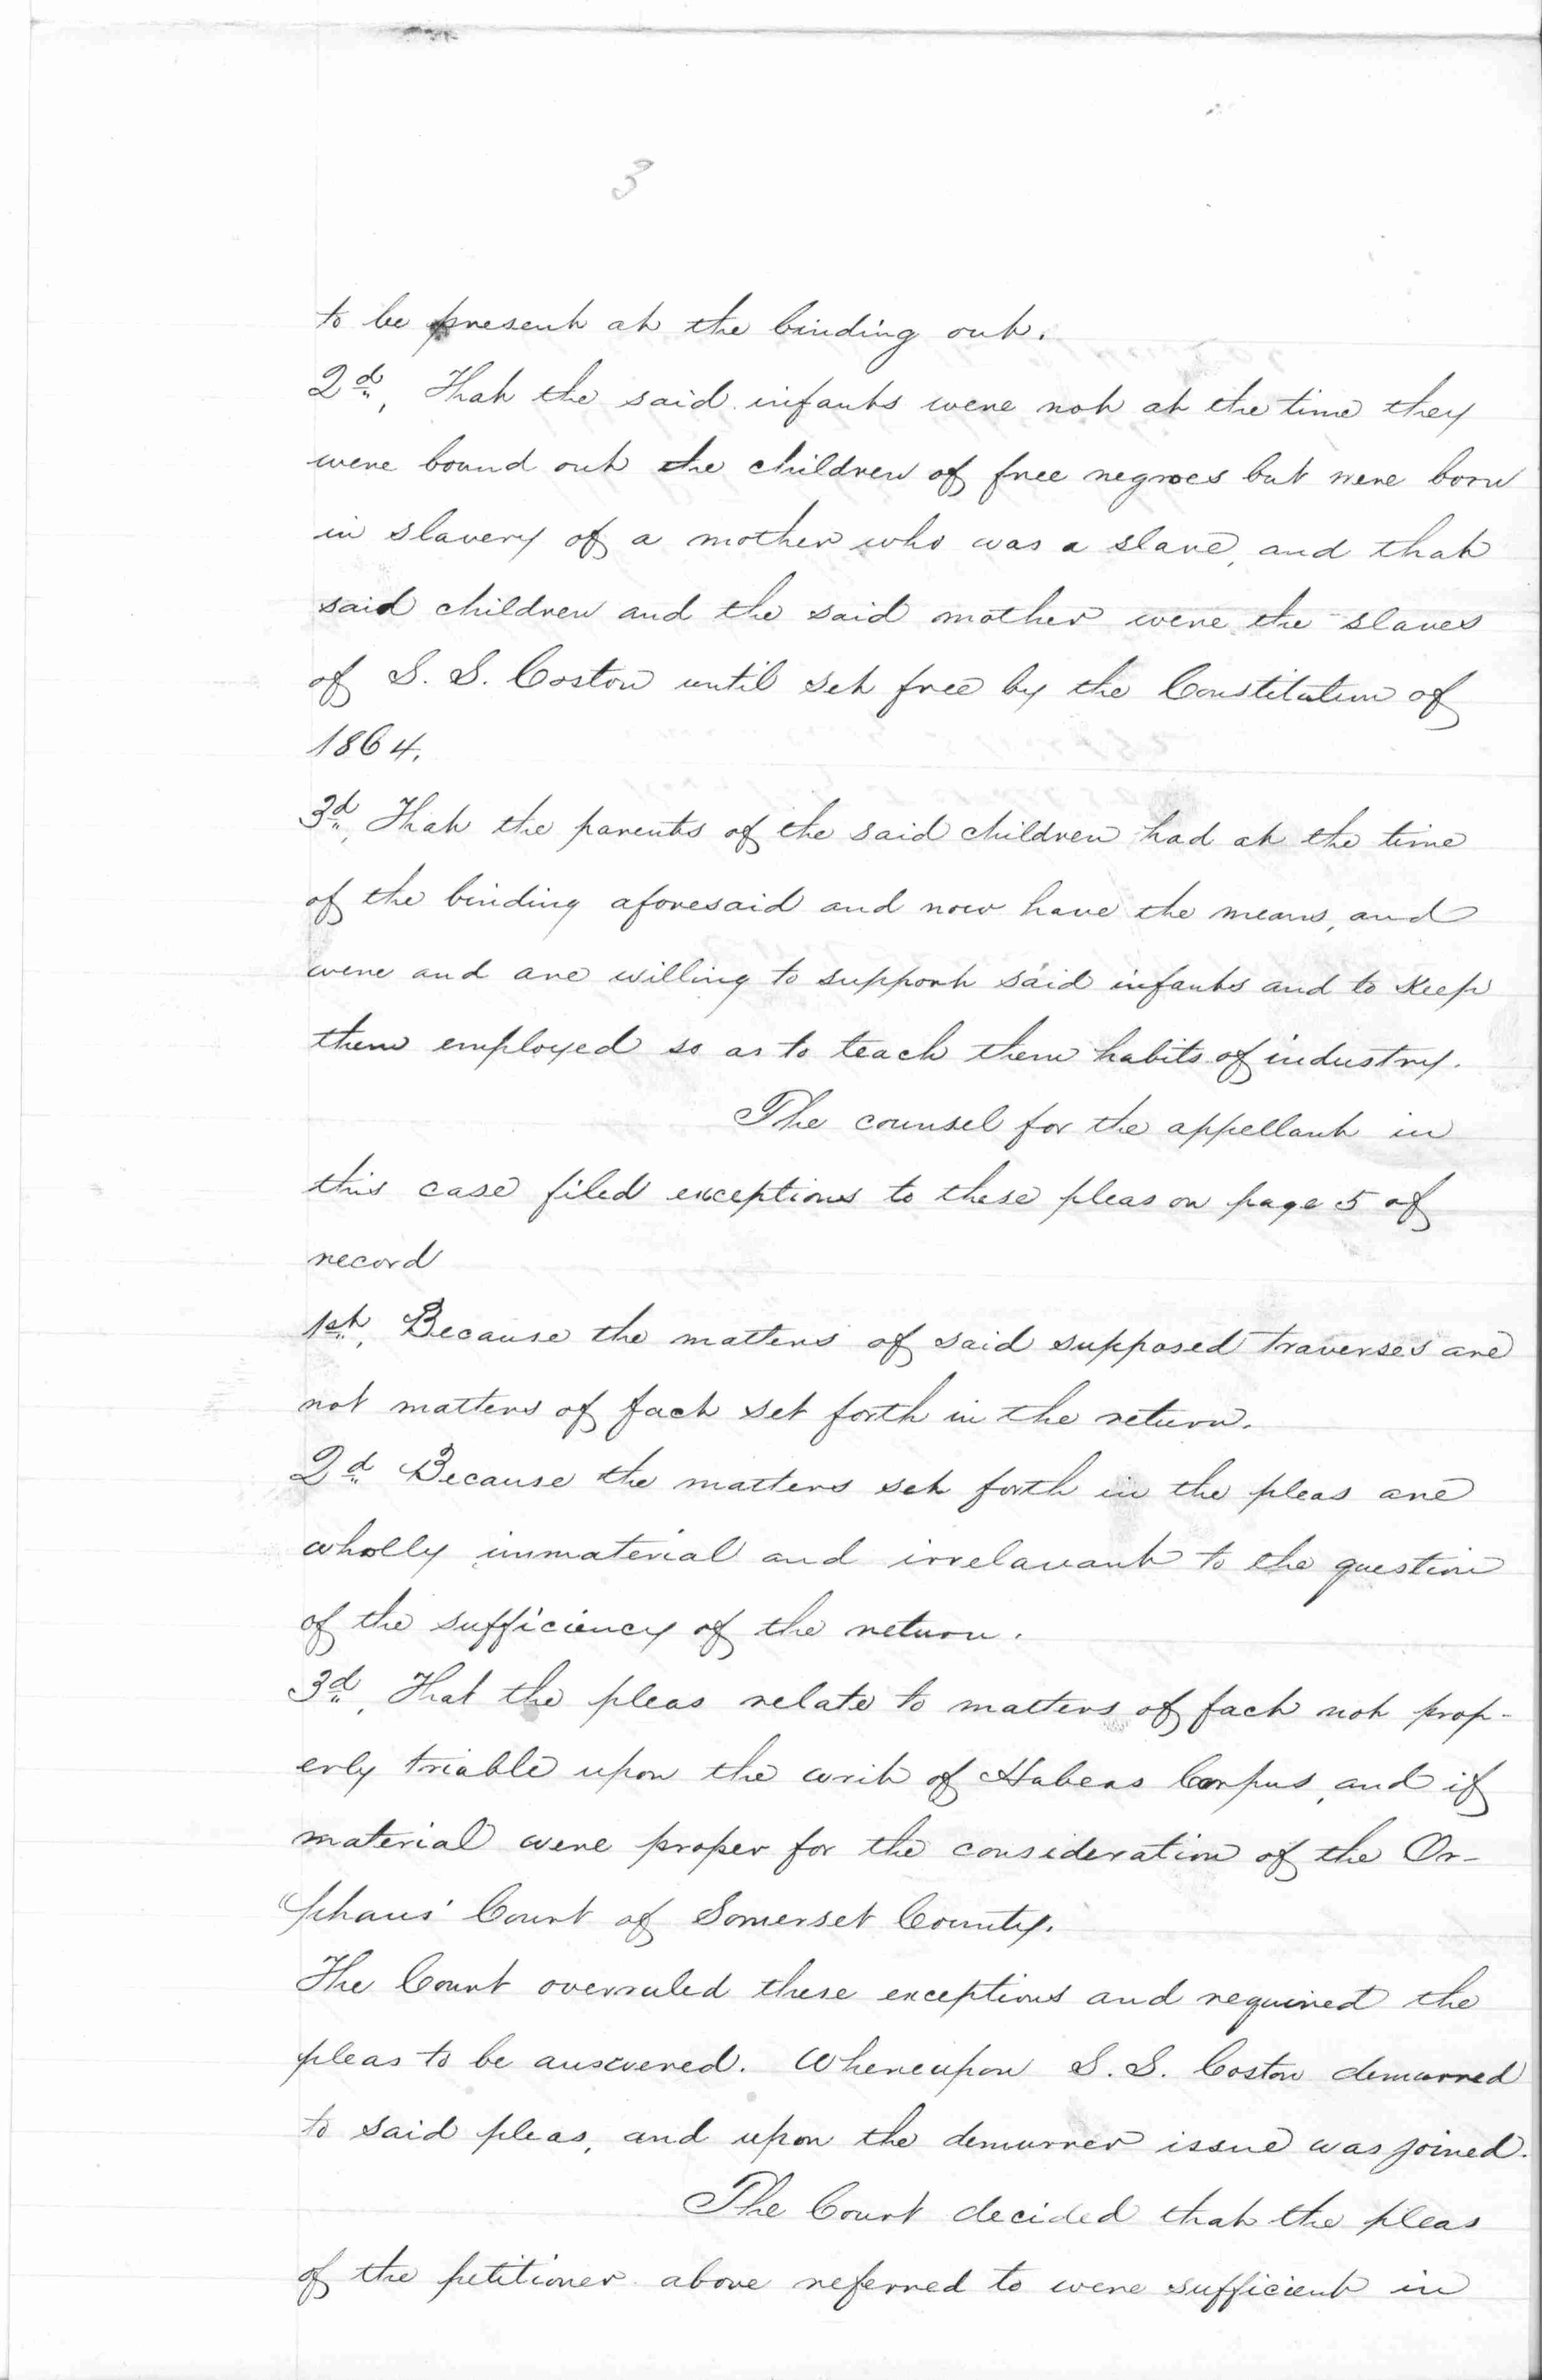 3
to be present at the binding out.
2d, That the said infants were not at the time they
were bound out the children of free negroes but were born
in slavery of a mother who was a slave, and that
said children and the said mother were the slaves
of S. S. Coston until set free by the Constitution of
1864.
3d, That the parents of the said children had at the time
of the binding aforesaid and now have the means, and
were and are willing to support said infants and to keep
them employed so as to teach them habits of industry.
The counsel for the appellant in
this case filed exceptions to these pleas on page 5 of
record
1st, Because the matters of said supposed traverses are
not matters of fact set forth in the return.
2d Because the matters set forth in the pleas are
wholly immaterial and irrelavant to the question
of the sufficiency of the return.
3d, That the pleas relate to matters of fact not prop-
erly triable upon the writ of Habeas Corpus, and if
material were proper for the consideration of the Or-
phans' Court of Somerset County.
The Court overruled these exceptions and required the
pleas to be answered. Whereupon S. S. Coston demurred
to said pleas, and upon the demurrer issue was joined.
The Court decided that the pleas
of the petitioner above referred to were sufficient in